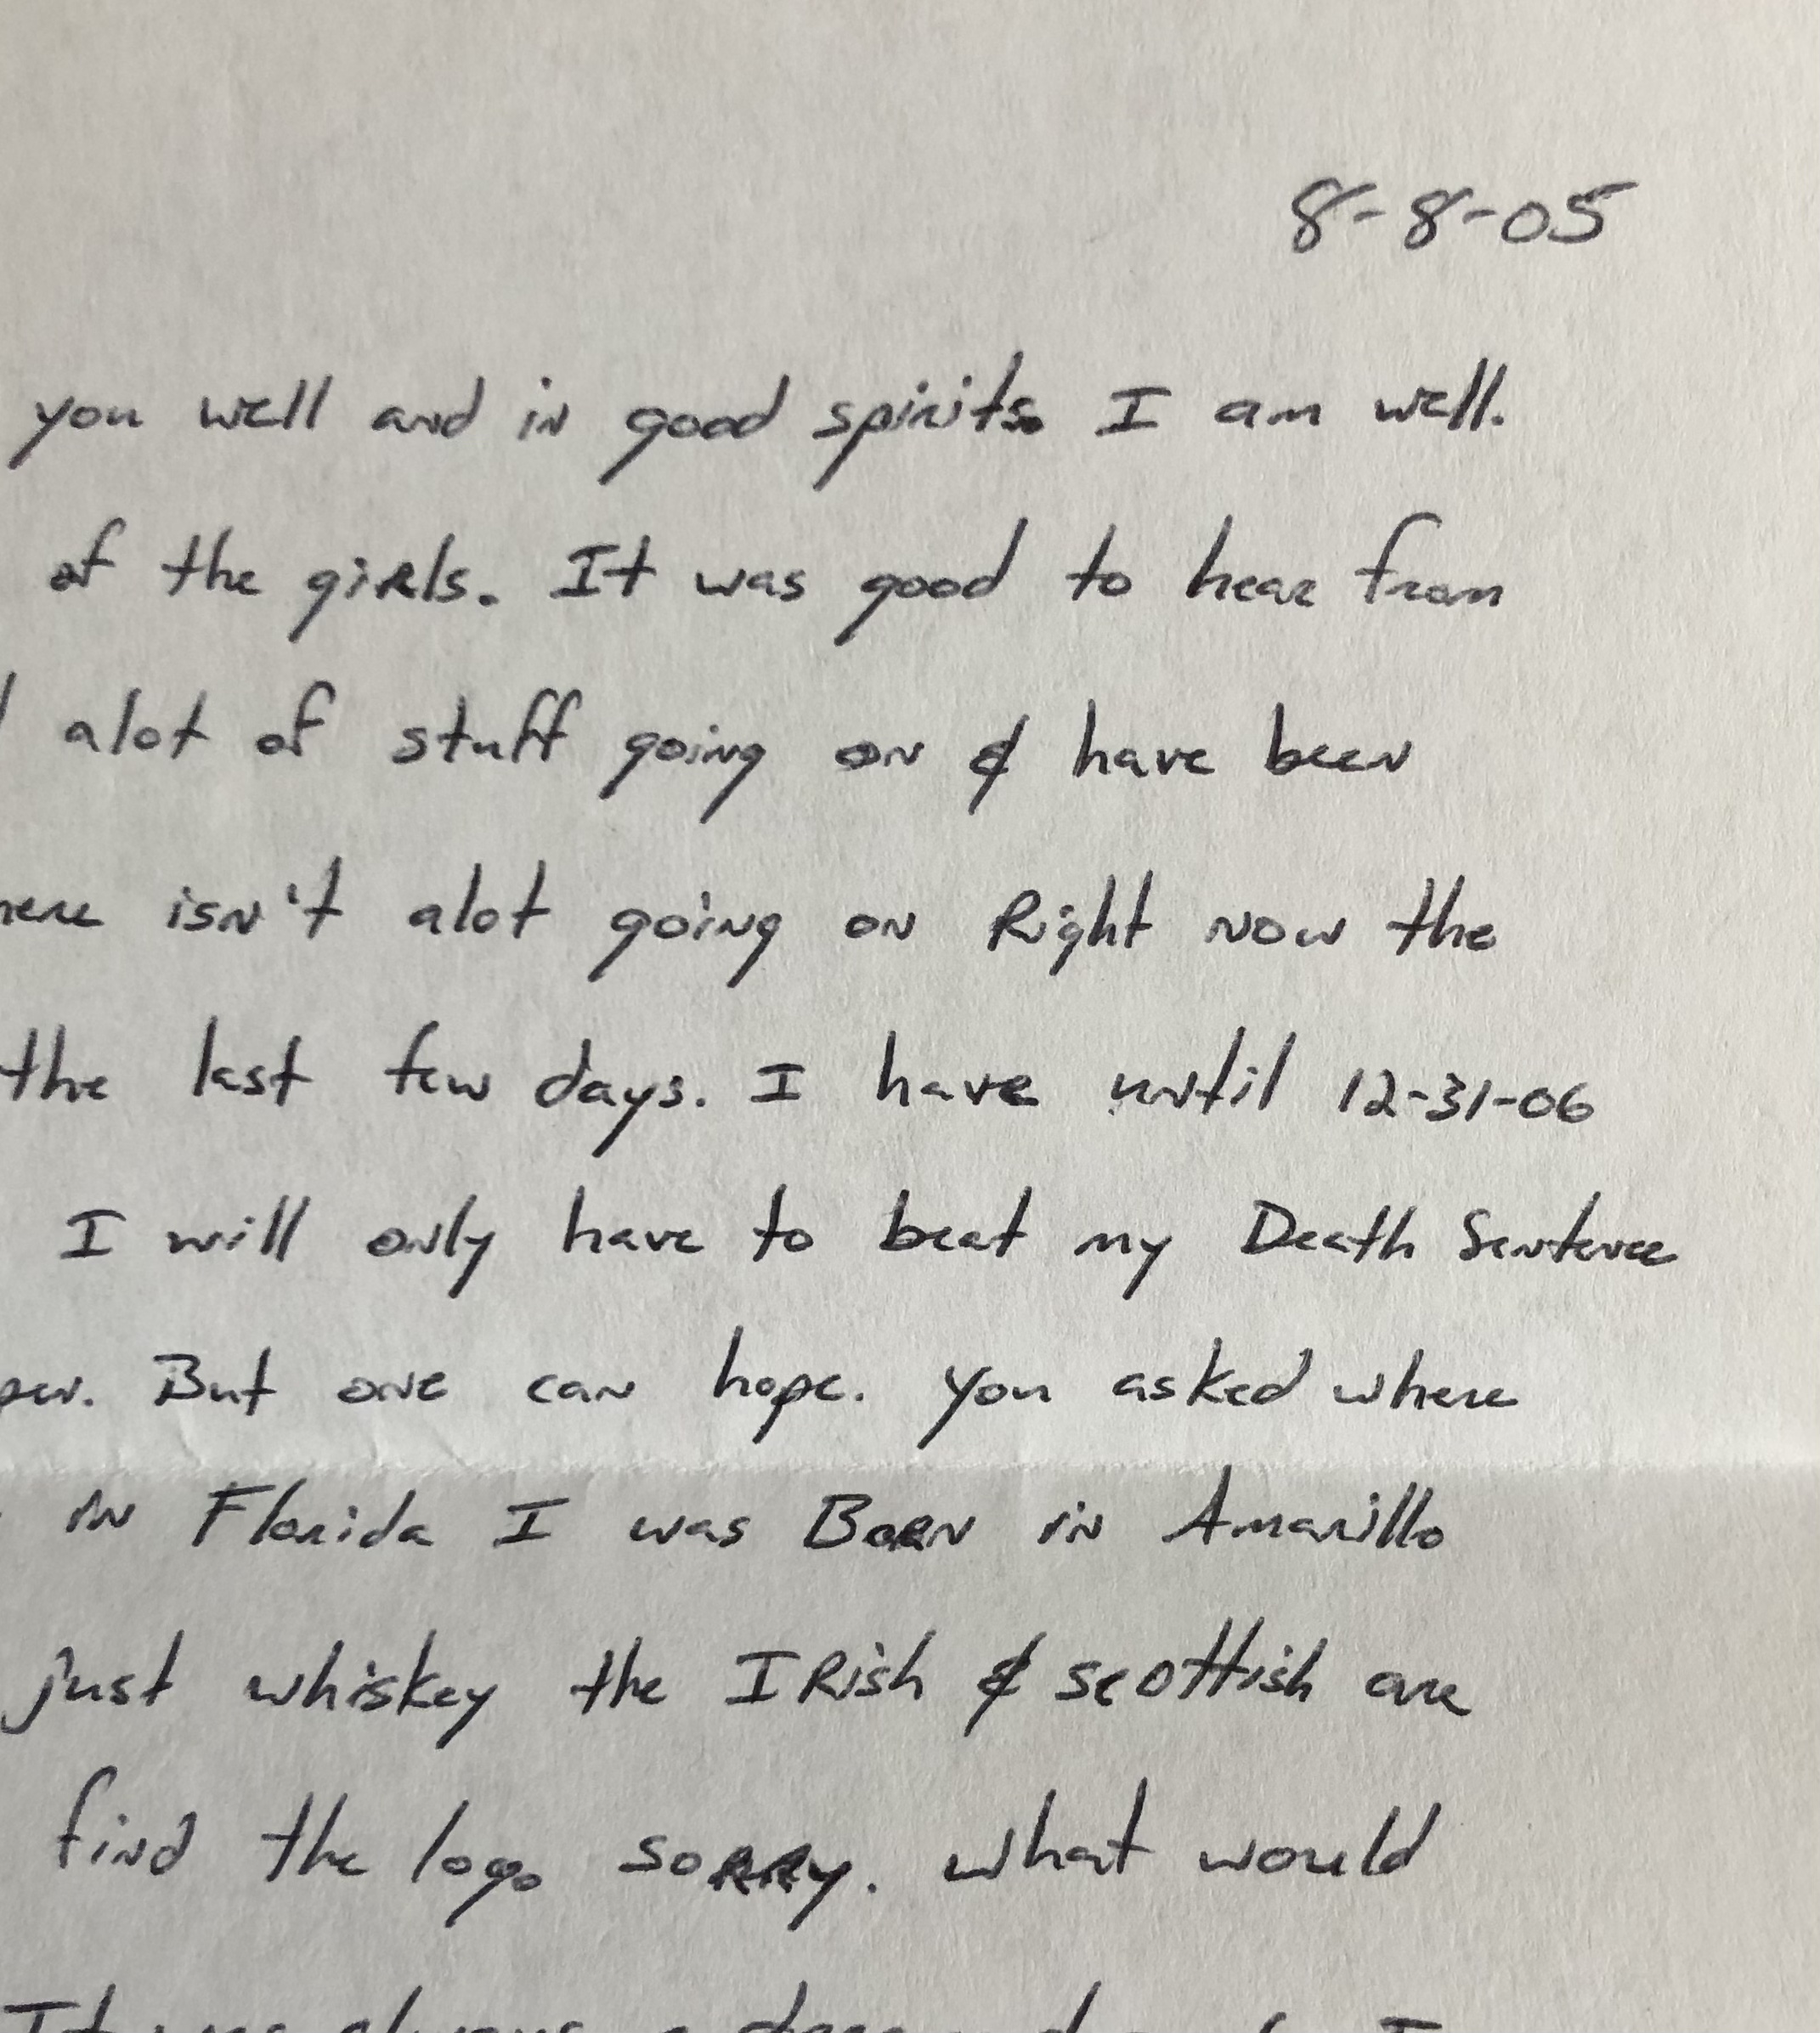 8-8-05
you well and in good spirits. I am well.
of the girls. It was good to hear from
alot of stuff going on & have been
isn't alot going on Right now the
the last few days. I have until 12-31-06
I will only have to beat my Death Sentence
But one can hope. you asked where
in Florida I was Born in Amarillo
just whiskey the IRish & scottish are
find the logo sorry. what would
It was always a